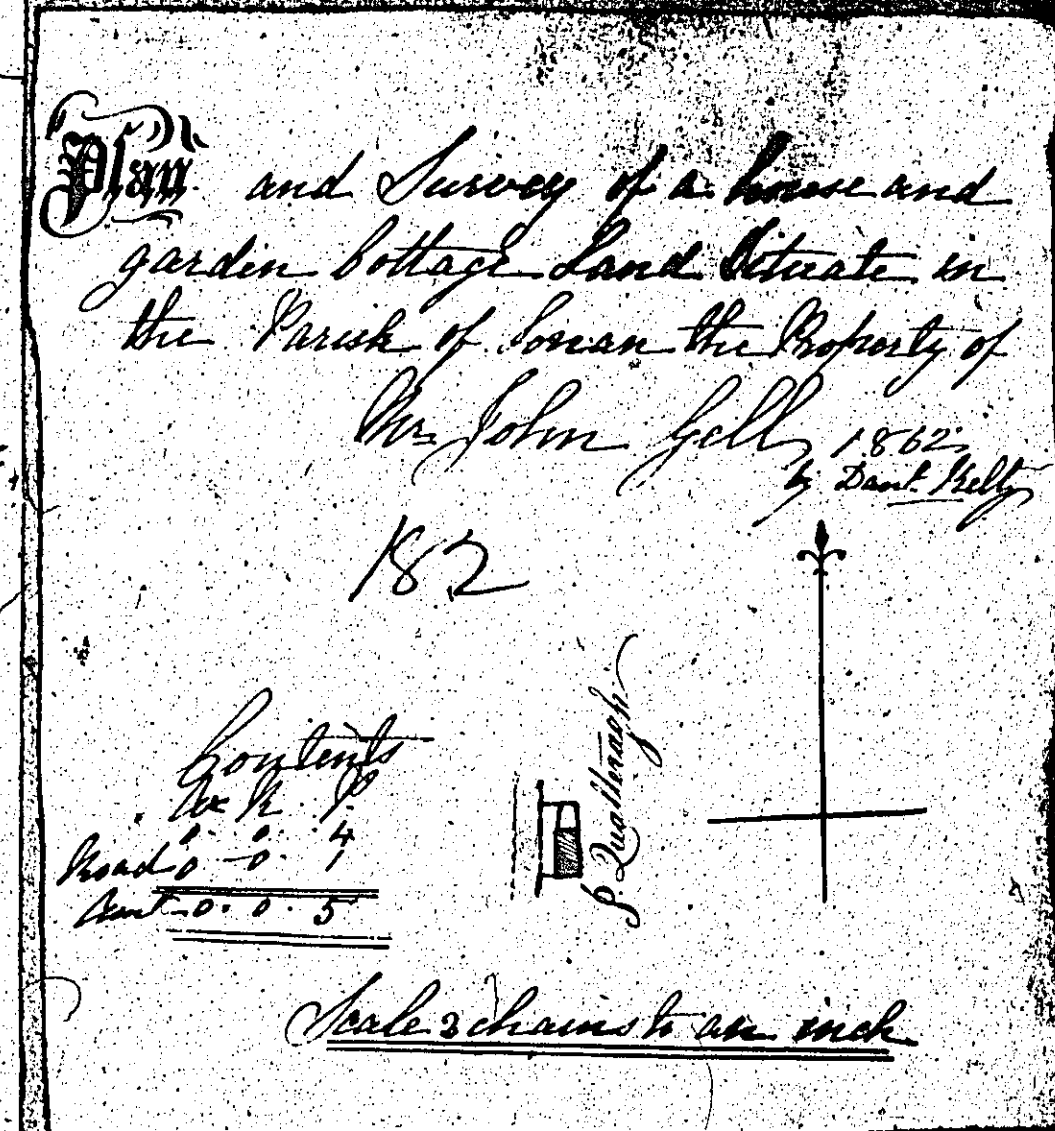 Plan and Survey of a house and
garden Cottage Land Situate in
the Parish of Lonan the Property of
Mr John Gell 1862
by Danl. Kelly
182
Contents
Ac R P
0 . 0 . 4
Road 0 - 0 . 1
0 . 0 . 5
S. Qualtrough
Scale 2 chains to an inch